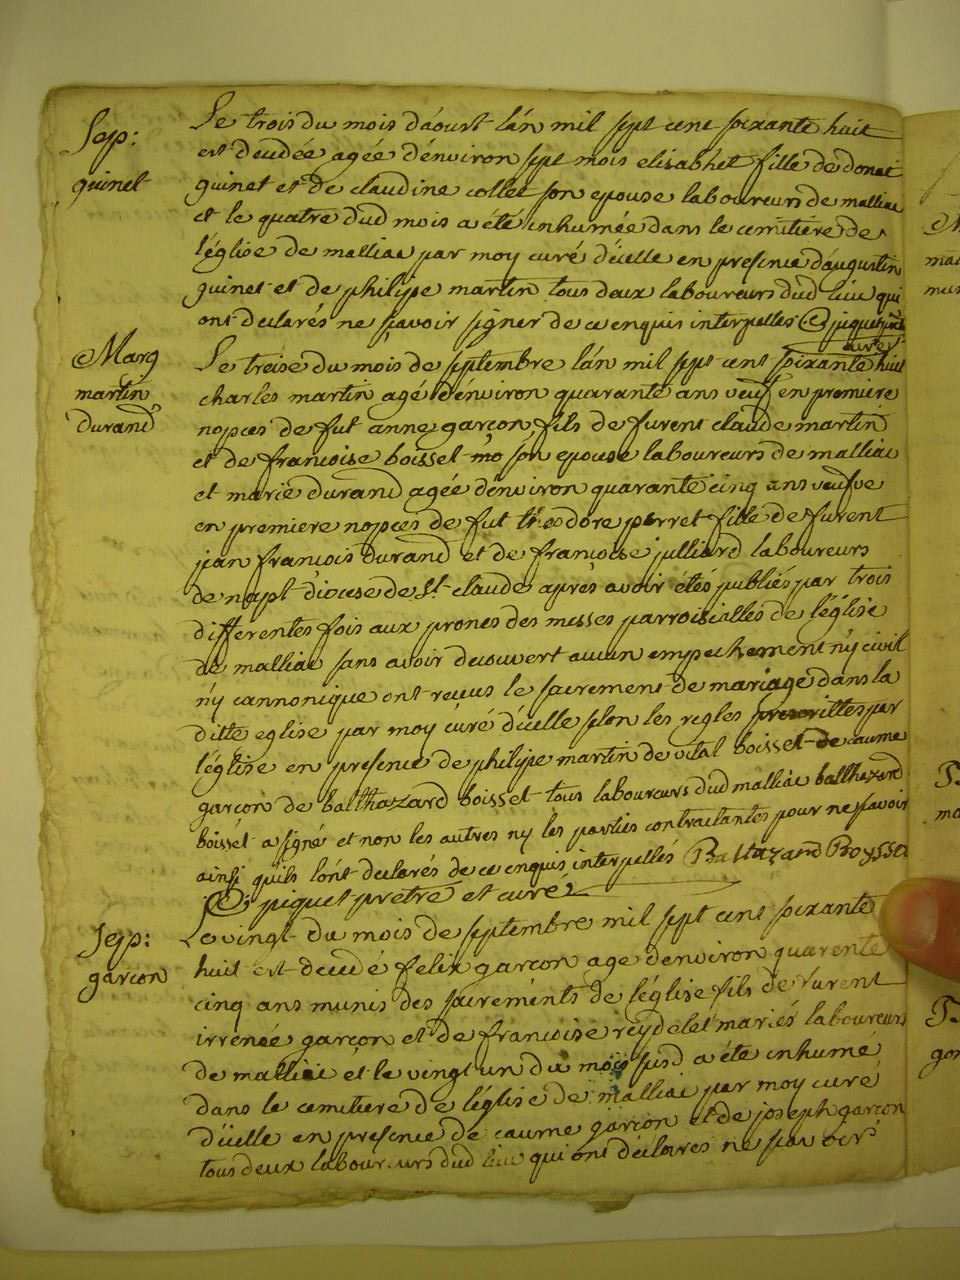 Sep:
quinet
Le trois du mois d'aoust l'an mil sept cent soixante huit
est decédée agée d'environ sept mois elisabhet fille de donat
guinet et de claudine collet son epouse laboureurs de malliac
et le quatre dud mois a été inhumée dans le cemitiere de
l'église de malliac par moy curé d'icelle en presence d'augustin
guinet et de philipe martin tous deux laboureurs dud lieu qui
ont declarés ne sçavoir signer de ce enquis interpellés piquet
curé
Marg
martin
durand
Le treise du mois de septembre l'an mil sept cent soixante huit
charles martin agé d'environ quarante ans veuf en premiere
nopces de fut anne garçon fils de furent claude martin
et de francoise boisset son epouse laboureurs de malliac
et marie durand agée d'environ quarante cinq ans veufve
en premiere nopces de fut theodore perret fille de furent
jean francois durand et de francoise julliard laboureurs
de napt diocese de St claude apres avoir étés publiés par trois
differentes fois aux prones des messes parroisialles de l'église
de malliac sans avoir decouvert aucun empechement n'y civil
n'y cannonique ont reçus le sacrement de mariage dans la
ditte eglise par moy curé d'icelle selon les regles prescrittes par
l'église en presence de philipe martin de vital boisset de caume
garcon de balthazard boisset tous laboureurs dud malliac balthazard
boisset a signé et non les autres ny les parties contraitantes pour ne sçavoir
ainsi qu'ils l'ont declarés de ce enquis interpellés Baltazard Boysset
piquet pretre et curé
Sep:
garcon
Le vingt du mois de septembre mil sept cent soixante
huit est decedé felix garçon age d'environ quarente
cinq ans munis des sacrements de l'église fils de furent
irrenée garçon et de francoise reydelet mariés laboureurs
de malliac et le vingt un du mois susd a été inhumé
dans le cemitiere de l'église de malliac par moy curé
d'icelle en presence de caume garçon et de joseph garcon
tous deux laboureurs dud lieu qui ont déclarés ne sçavoir